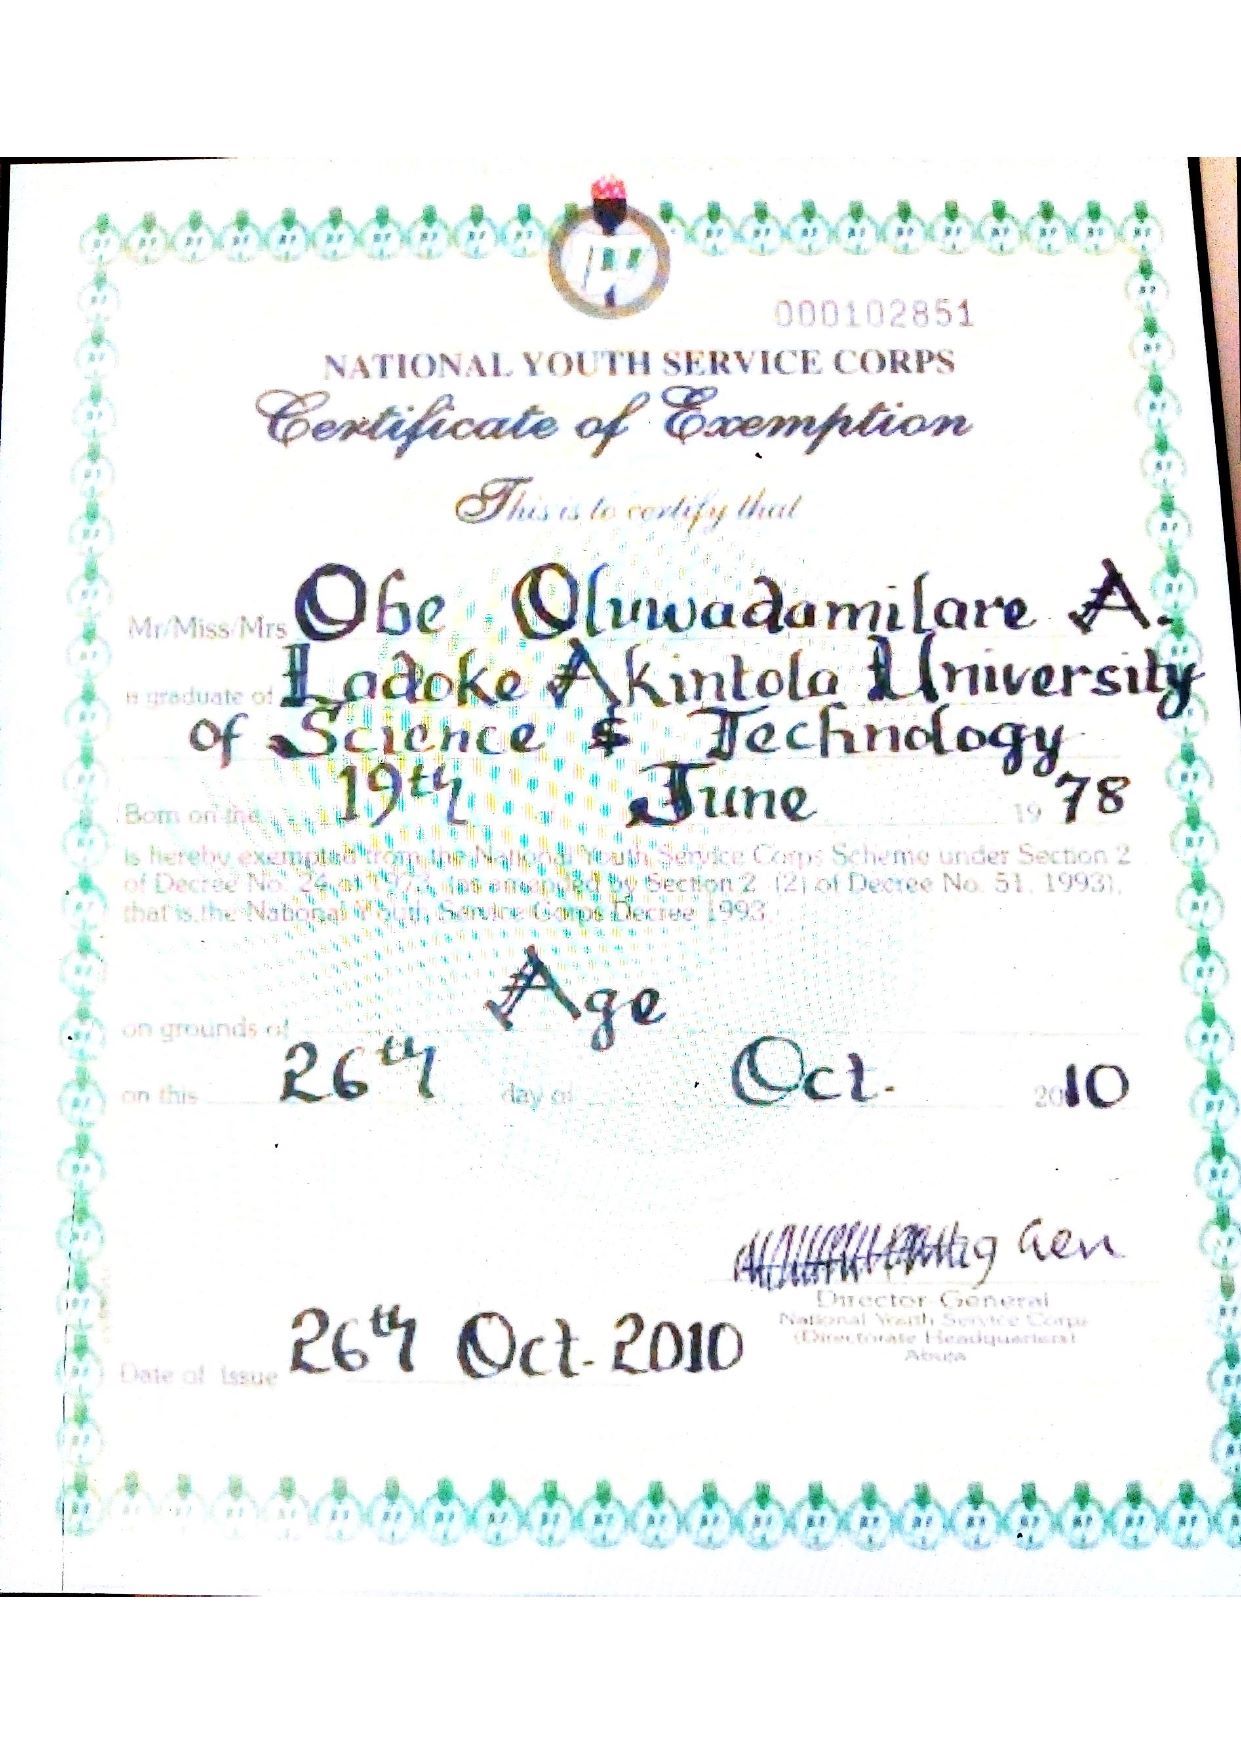 000102851
NATIONAL YOUTH SERVICE CORPS
Certificate of Exemption
This is to certify that
Mr/Miss/Mrs Obe Oluwadamilare A.
a graduate of Ladoke Akintola University
of Science & Technology
Born on the 19th June 1978
is hereby exempted from the National Youth Service Corps Scheme under Section 2
of Decree No. 24 of 1973, (as amended by Section 2 (2) of Decree No. 51, 1993),
that is the National Youth Service Corps Decree 1993.
Age
on grounds of
on this 26th day of Oct. 2010
Gen
Director General
National Youth Service Corps
(Directorate Headquarters)
Abuja
Date of Issue 26th Oct. 2010